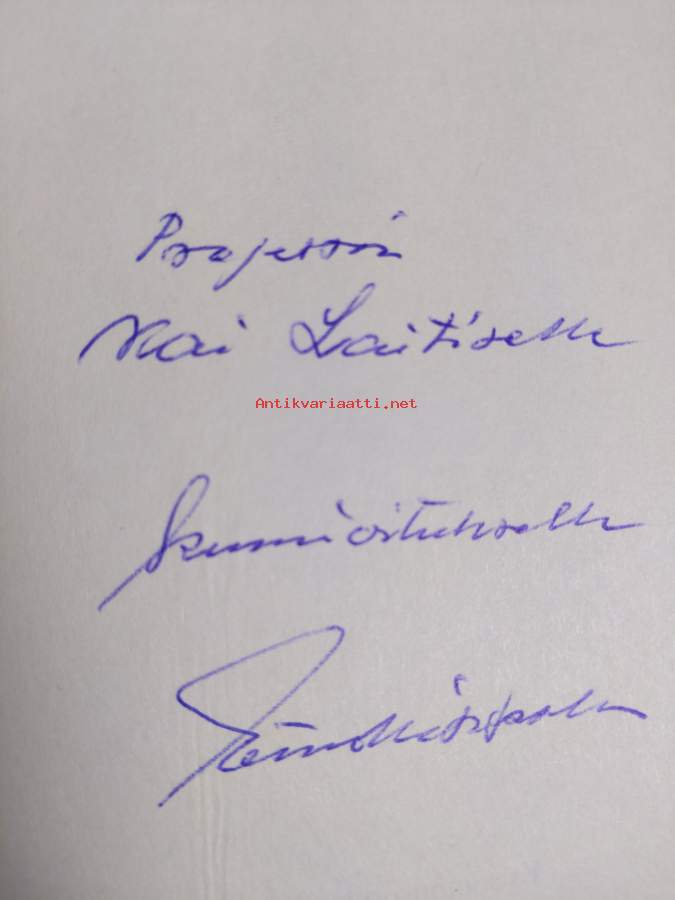 Professori
Kai Laitiselle
Antikvariaatti.net
kunnioituksella